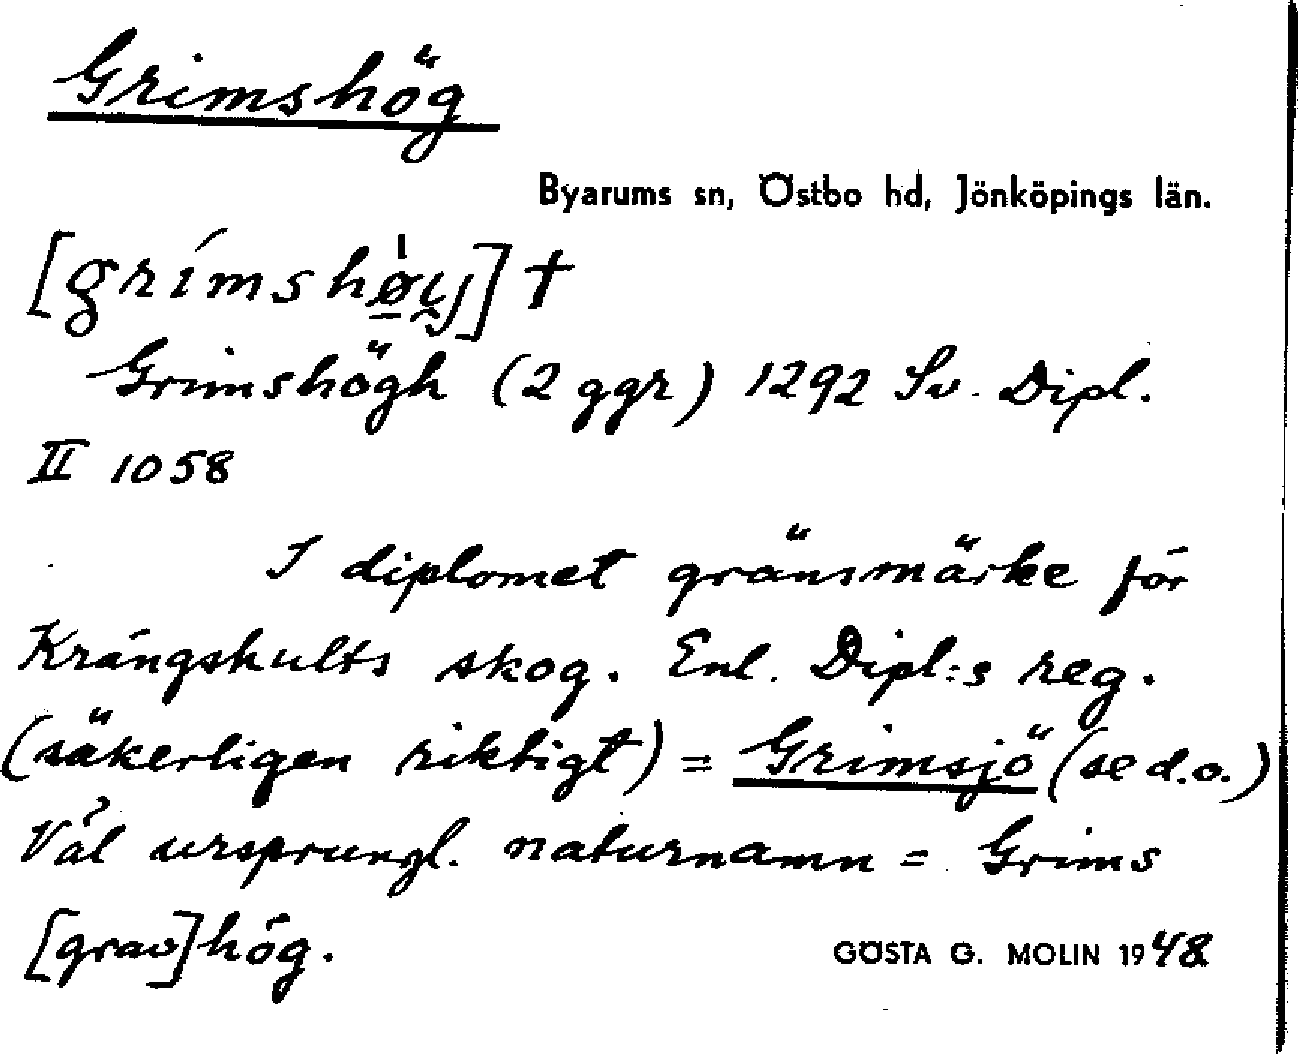 Grimshög
Byarums sn, Östbo hd, Jönköpings län.
[grímshø̠̍ɥj] †
Grimshögh (2 ggr) 1292 Sv. Dipl.
II 1058
I diplomet gränsmärke för
Krängshults skog. Enl. Dipl:s reg.
(säkerligen riktigt) = Grimsjö (se d.o.)
Väl ursprungl. naturnamn = Grims
[grav]hög.
GÖSTA G. MOLIN 1948